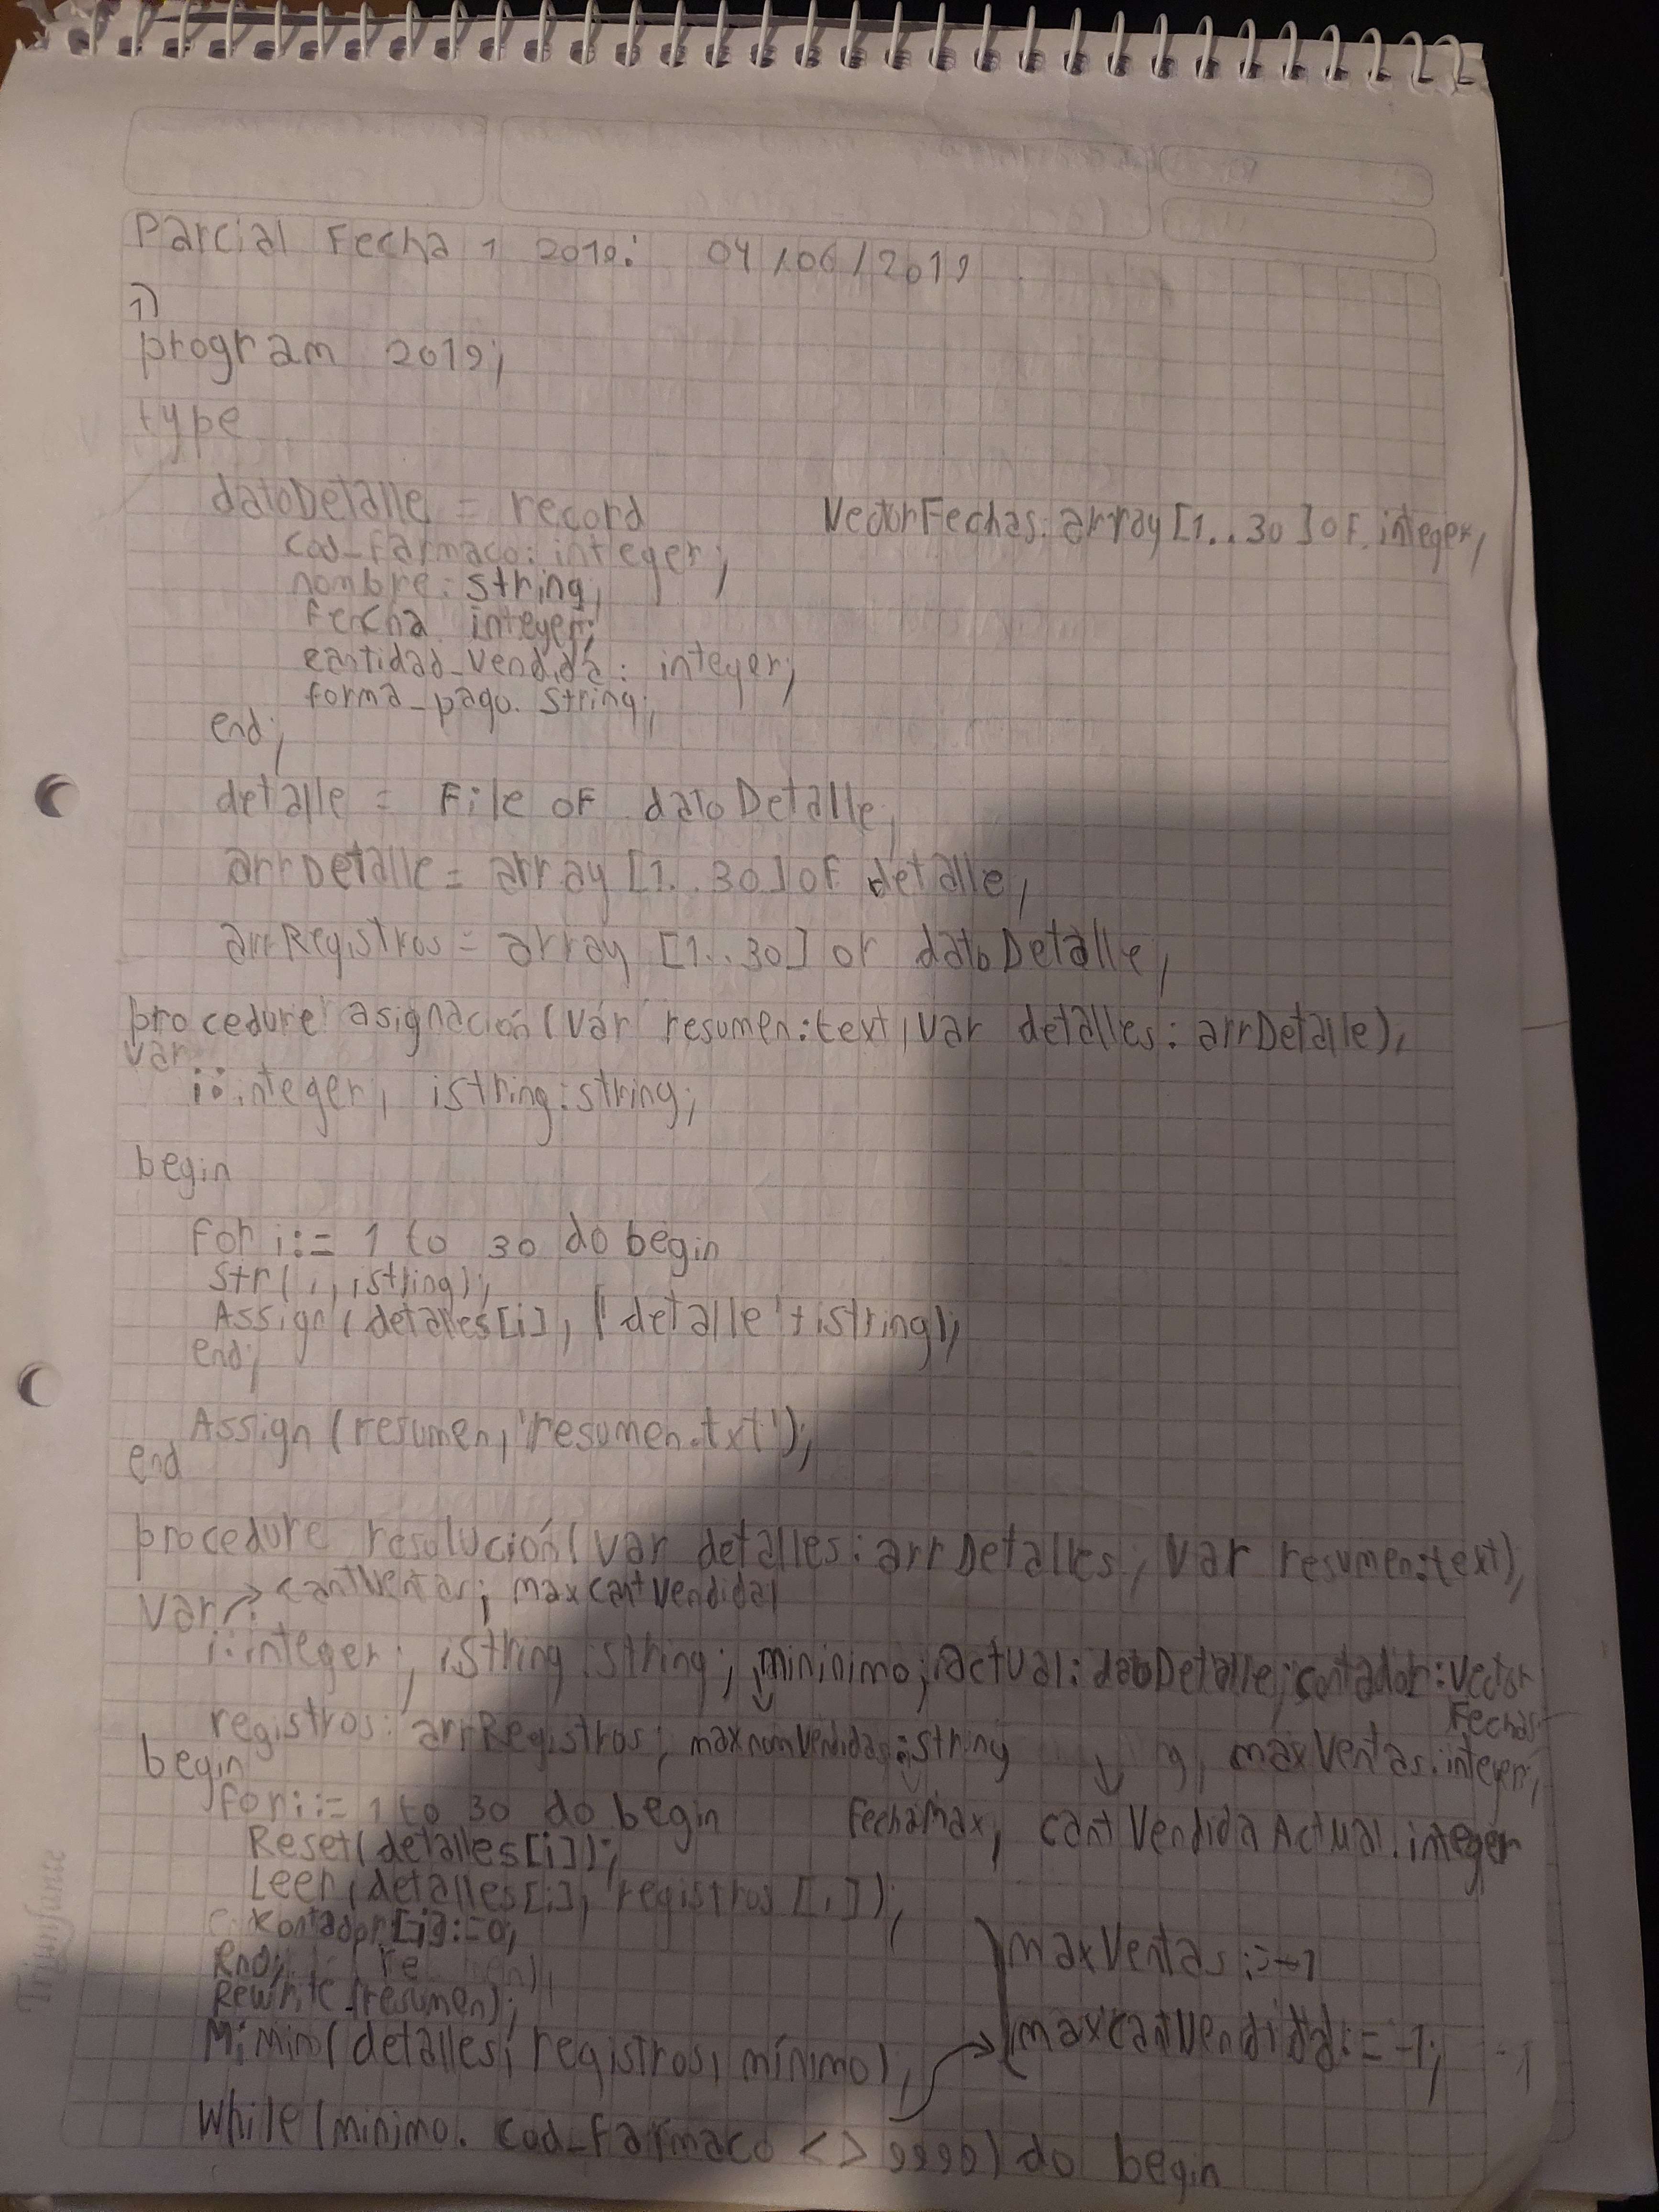 Parcial Fecha 1 2019: 04/06/2019
1)
program 2019;
type
datoDetalle = record
VectorFechas: array [1..30] of integer;
cod_farmaco: integer;
nombre: string;
fercha integer;
cantidad_vendida: integer;
forma_pago. string;
end;
detalle = File of datoDetalle;
arrDetalle = array [1..30] of detalle;
arrRegistros = array [1..30] of datoDetalle;
procedure asignación (var resumen:text, var detalles: arrDetalle);
var
i: integer, istring:string;
begin
for i:= 1 to 30 do begin
Str(i, istring);
Assign (detalles[i], 'detalle'+istring);
end;
Assign (resumen, 'resumen.txt');
end
procedure resolución (var detalles: arrDetalles; var resumen:text);
cantVentas; maxCantVendida,
var
i: integer; istring:string; mininimo; actual: datoDetalle; contador: Vector
Fechas
registros: arrRegistros; maxnomVendidas: string maxVentas: integer;
begin
for i:= 1 to 30 do begin
FechaMax, cantVendidaActual. integer
Reset(detalles[i]);
Leer(detalles[i], registros[i]);
contador[i]:=0;
end;
Rewrite (resumen);
maxVentas := -1
Minin(detalles, registros, mínimo);
maxCantVendida := -1;
While (minimo. cod_farmaco <> 9999) do begin
Triunfante